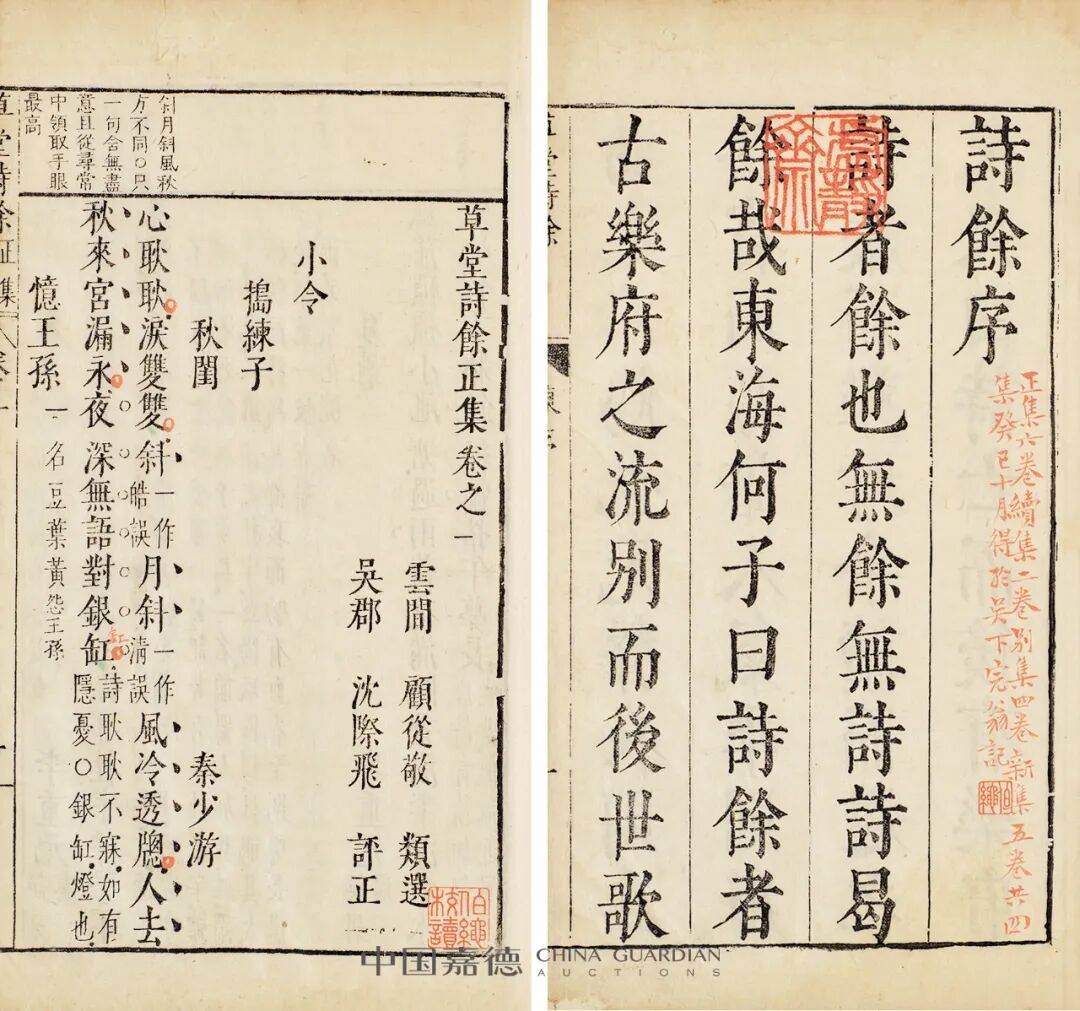 詩餘序
正集六卷續集二卷別集四卷新集五卷共四
集癸巳十月得於吳下完翁記
詩者餘也無餘無詩詩曷
餘哉東海何子曰詩餘者
古樂府之流別而後世歌
草堂詩餘正集卷之一
雲間 顧從敬 類選
吳郡 沈際飛 評正
小令
搗練子
秋閨 秦少游
斜月斜風秋
方不同○只
一句含無盡
意且從尋常
中領取手眼
最高
心耿耿淚雙雙斜一作皓誤月斜一作清誤風冷透牎人去
秋來宮漏永夜深無語對銀缸詩耿耿不寐如有隱憂○銀缸燈也
憶王孫 一名豆葉黃怨王孫
草堂詩餘正集
中国嘉德 CHINA GUARDIAN
AUCTIONS